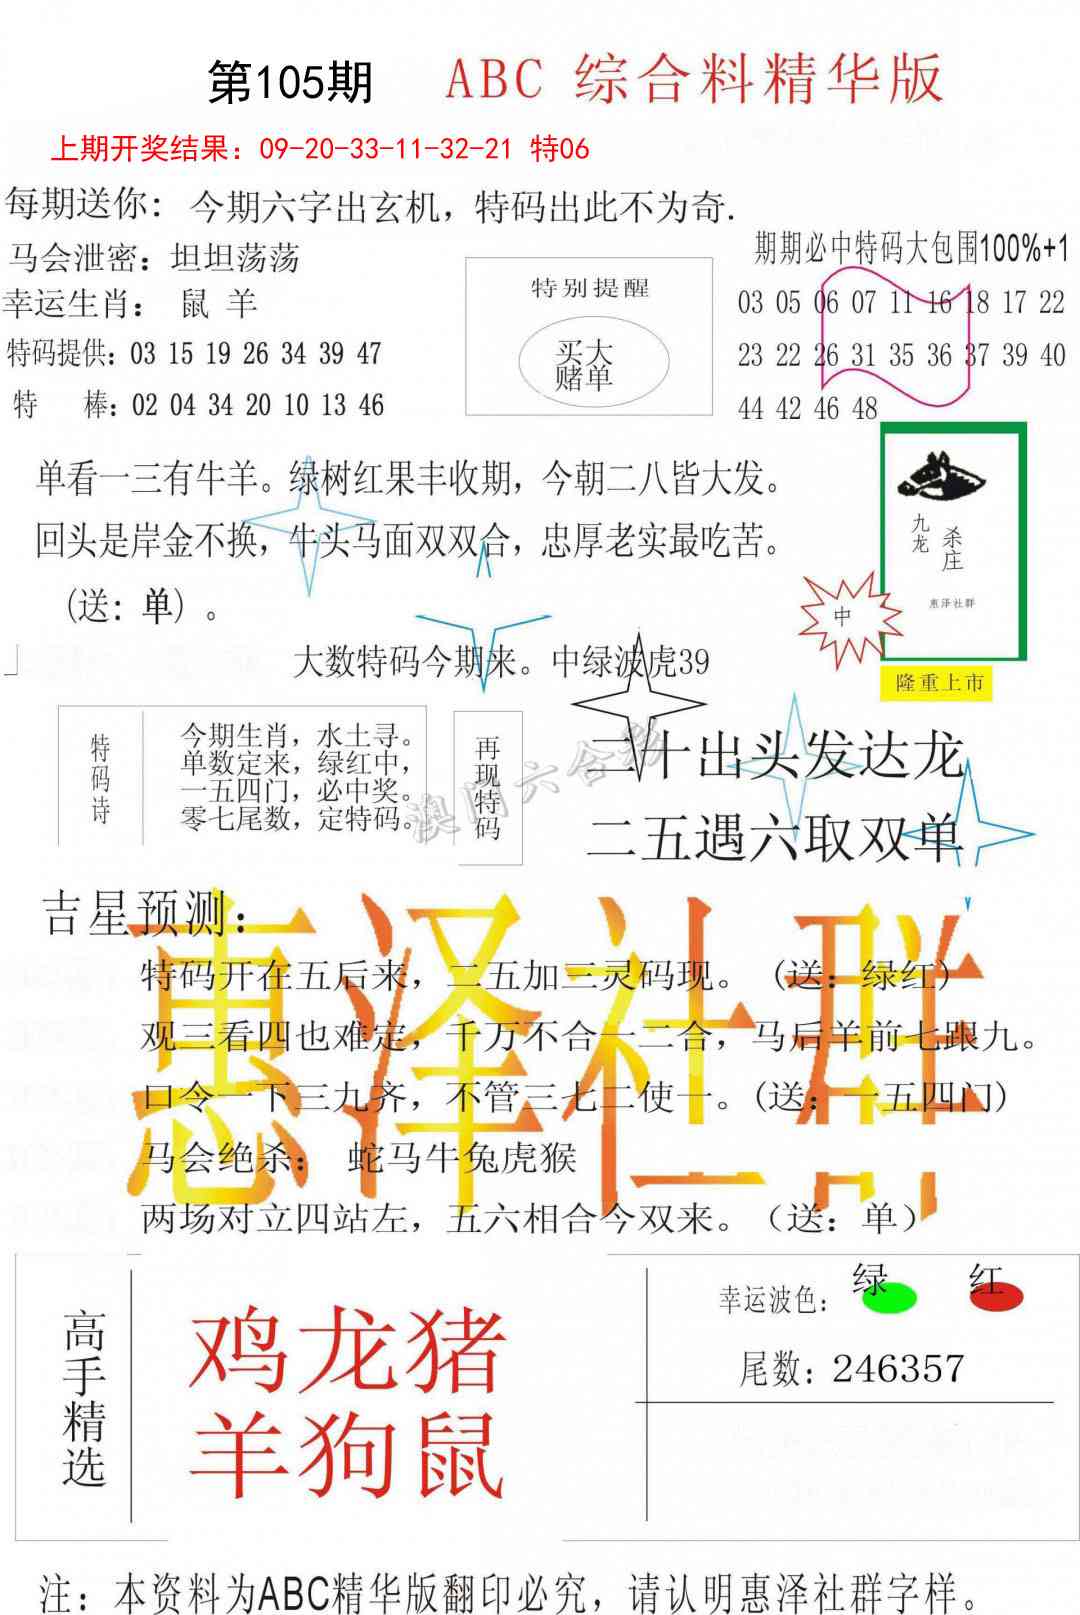 第105期 ABC 综合料精华版
上期开奖结果：09-20-33-11-32-21 特06
每期送你：今期六字出玄机，特码出此不为奇.
马会泄密：坦坦荡荡
幸运生肖： 鼠 羊
特码提供：03 15 19 26 34 39 47
特 棒：02 04 34 20 10 13 46
特别提醒
买大
赌单
期期必中特码大包围100%+1
03 05 06 07 11 16 18 17 22
23 22 26 31 35 36 37 39 40
44 42 46 48
单看一三有牛羊。绿树红果丰收期，今朝二八皆大发。
回头是岸金不换，牛头马面双双合，忠厚老实最吃苦。
（送：单）。
九龙
杀庄
惠泽社群
中
隆重上市
大数特码今期来。中绿波虎39
特码诗
今期生肖，水土寻。
单数定来，绿红中，
一五四门，必中奖。
零七尾数，定特码。
再现特码
澳门六合彩
三十出头发达龙
二五遇六取双单
吉星预测：
惠泽社群
特码开在五后来，二五加三灵码现。（送：绿红）
观三看四也难定，千万不合一二合，马后羊前七跟九。
口令一下三九齐，不管三七二使一。(送：一五四门)
马会绝杀： 蛇马牛兔虎猴
两场对立四站左，五六相合今双来。（送：单）
高手精选
鸡龙猪
羊狗鼠
幸运波色： 绿 红
尾数：246357
注：本资料为ABC精华版翻印必究，请认明惠泽社群字样。